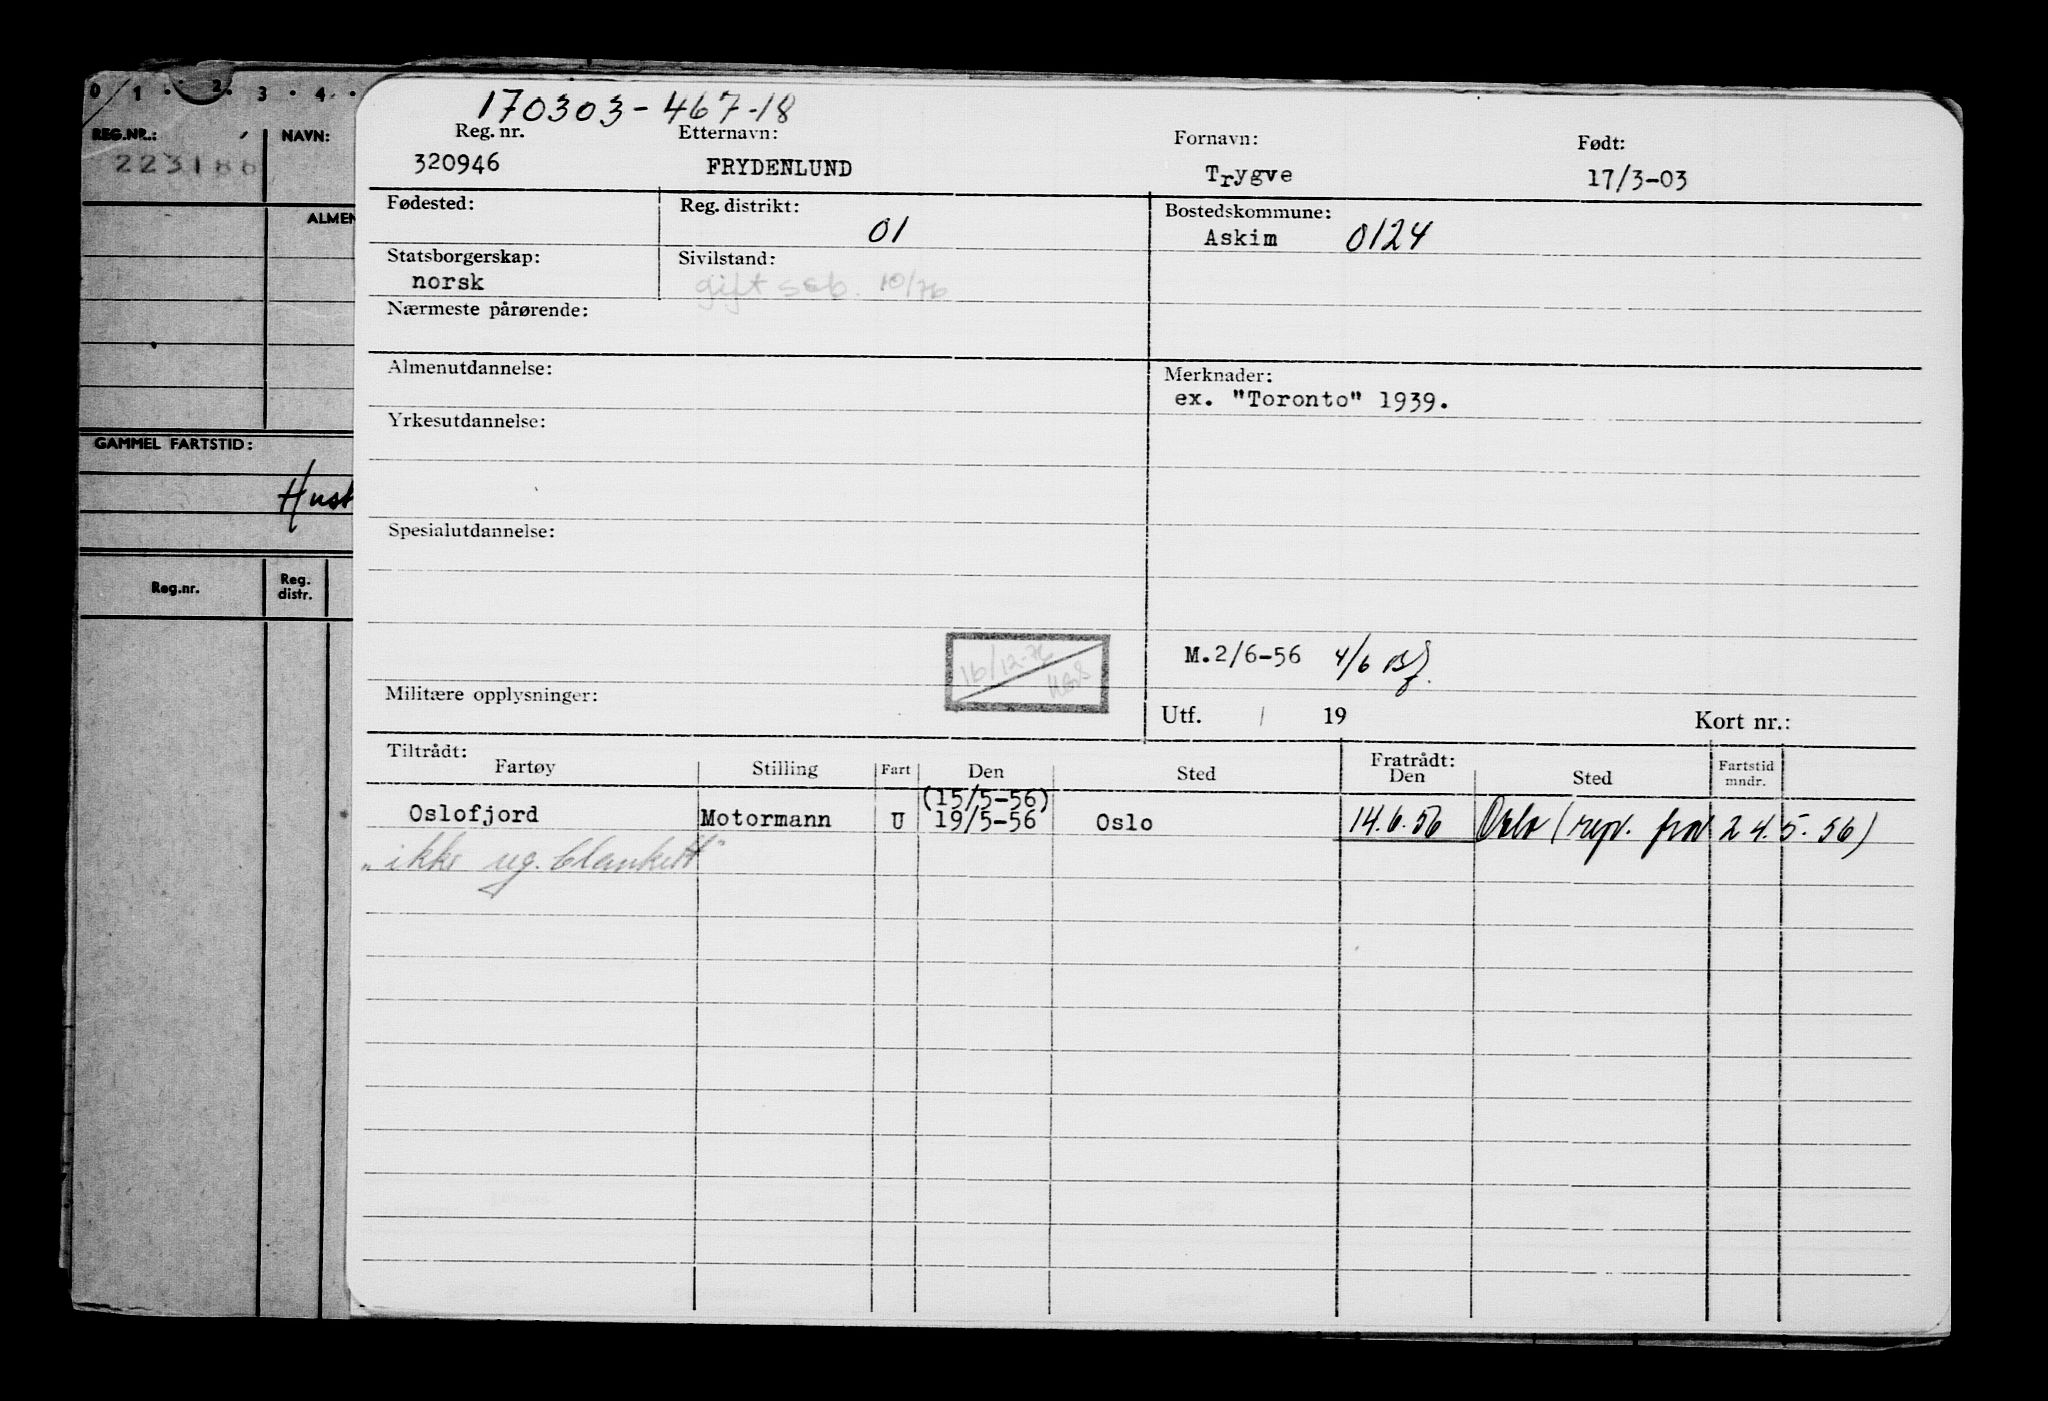 0 1 · 2 · 3 · 4 ·
REG.NR.: NAVN:
223188
ALMEN
GAMMEL FARTSTID:
Hust
Reg.nr. Reg. distr.
170303-467-18
Reg. nr. Etternavn: Fornavn: Født:
320946 FRYDENLUND Trygve 17/3-03
Fødested: Reg. distrikt: Bostedskommune:
01 Askim 0124
Statsborgerskap: Sivilstand:
norsk gift seb. 10/76
Nærmeste pårørende:
Almenutdannelse: Merknader:
ex. "Toronto" 1939.
Yrkesutdannelse:
Spesialutdannelse:
16/12-76
M.2/6-56 4/6 Bf.
Militære opplysninger:
Utf. / 19 Kort nr.:
Tiltrådt: Fratrådt:
Fartøy Stilling Fart Den Sted Den Sted Fartstid mndr.
(15/5-56)
Oslofjord Motormann U 19/5-56 Oslo 14.6.56 Oslo (repr. fra 24.5.56)
"ikke reg. blankett"